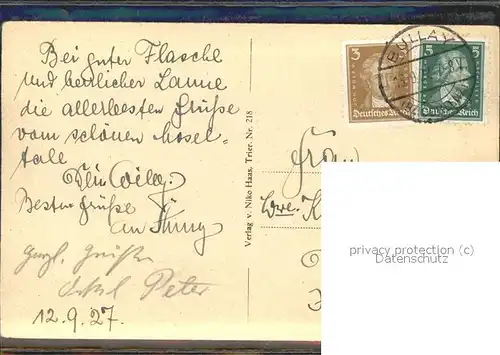 Bei guter Flasche
und herrlicher Laune
die allerbesten Grüße
vom schönen Mosel-
tale
Dein Willy.
Besten Grüße
Herzl. Grüße
Onkel Peter
12.9.27.
Verlag v. Niko Haas, Trier. Nr. 218
Frau
Wwe. K
BULLAY
3
Deutsches Reich
5
Deutsches Reich
privacy protection (c)
Datenschutz